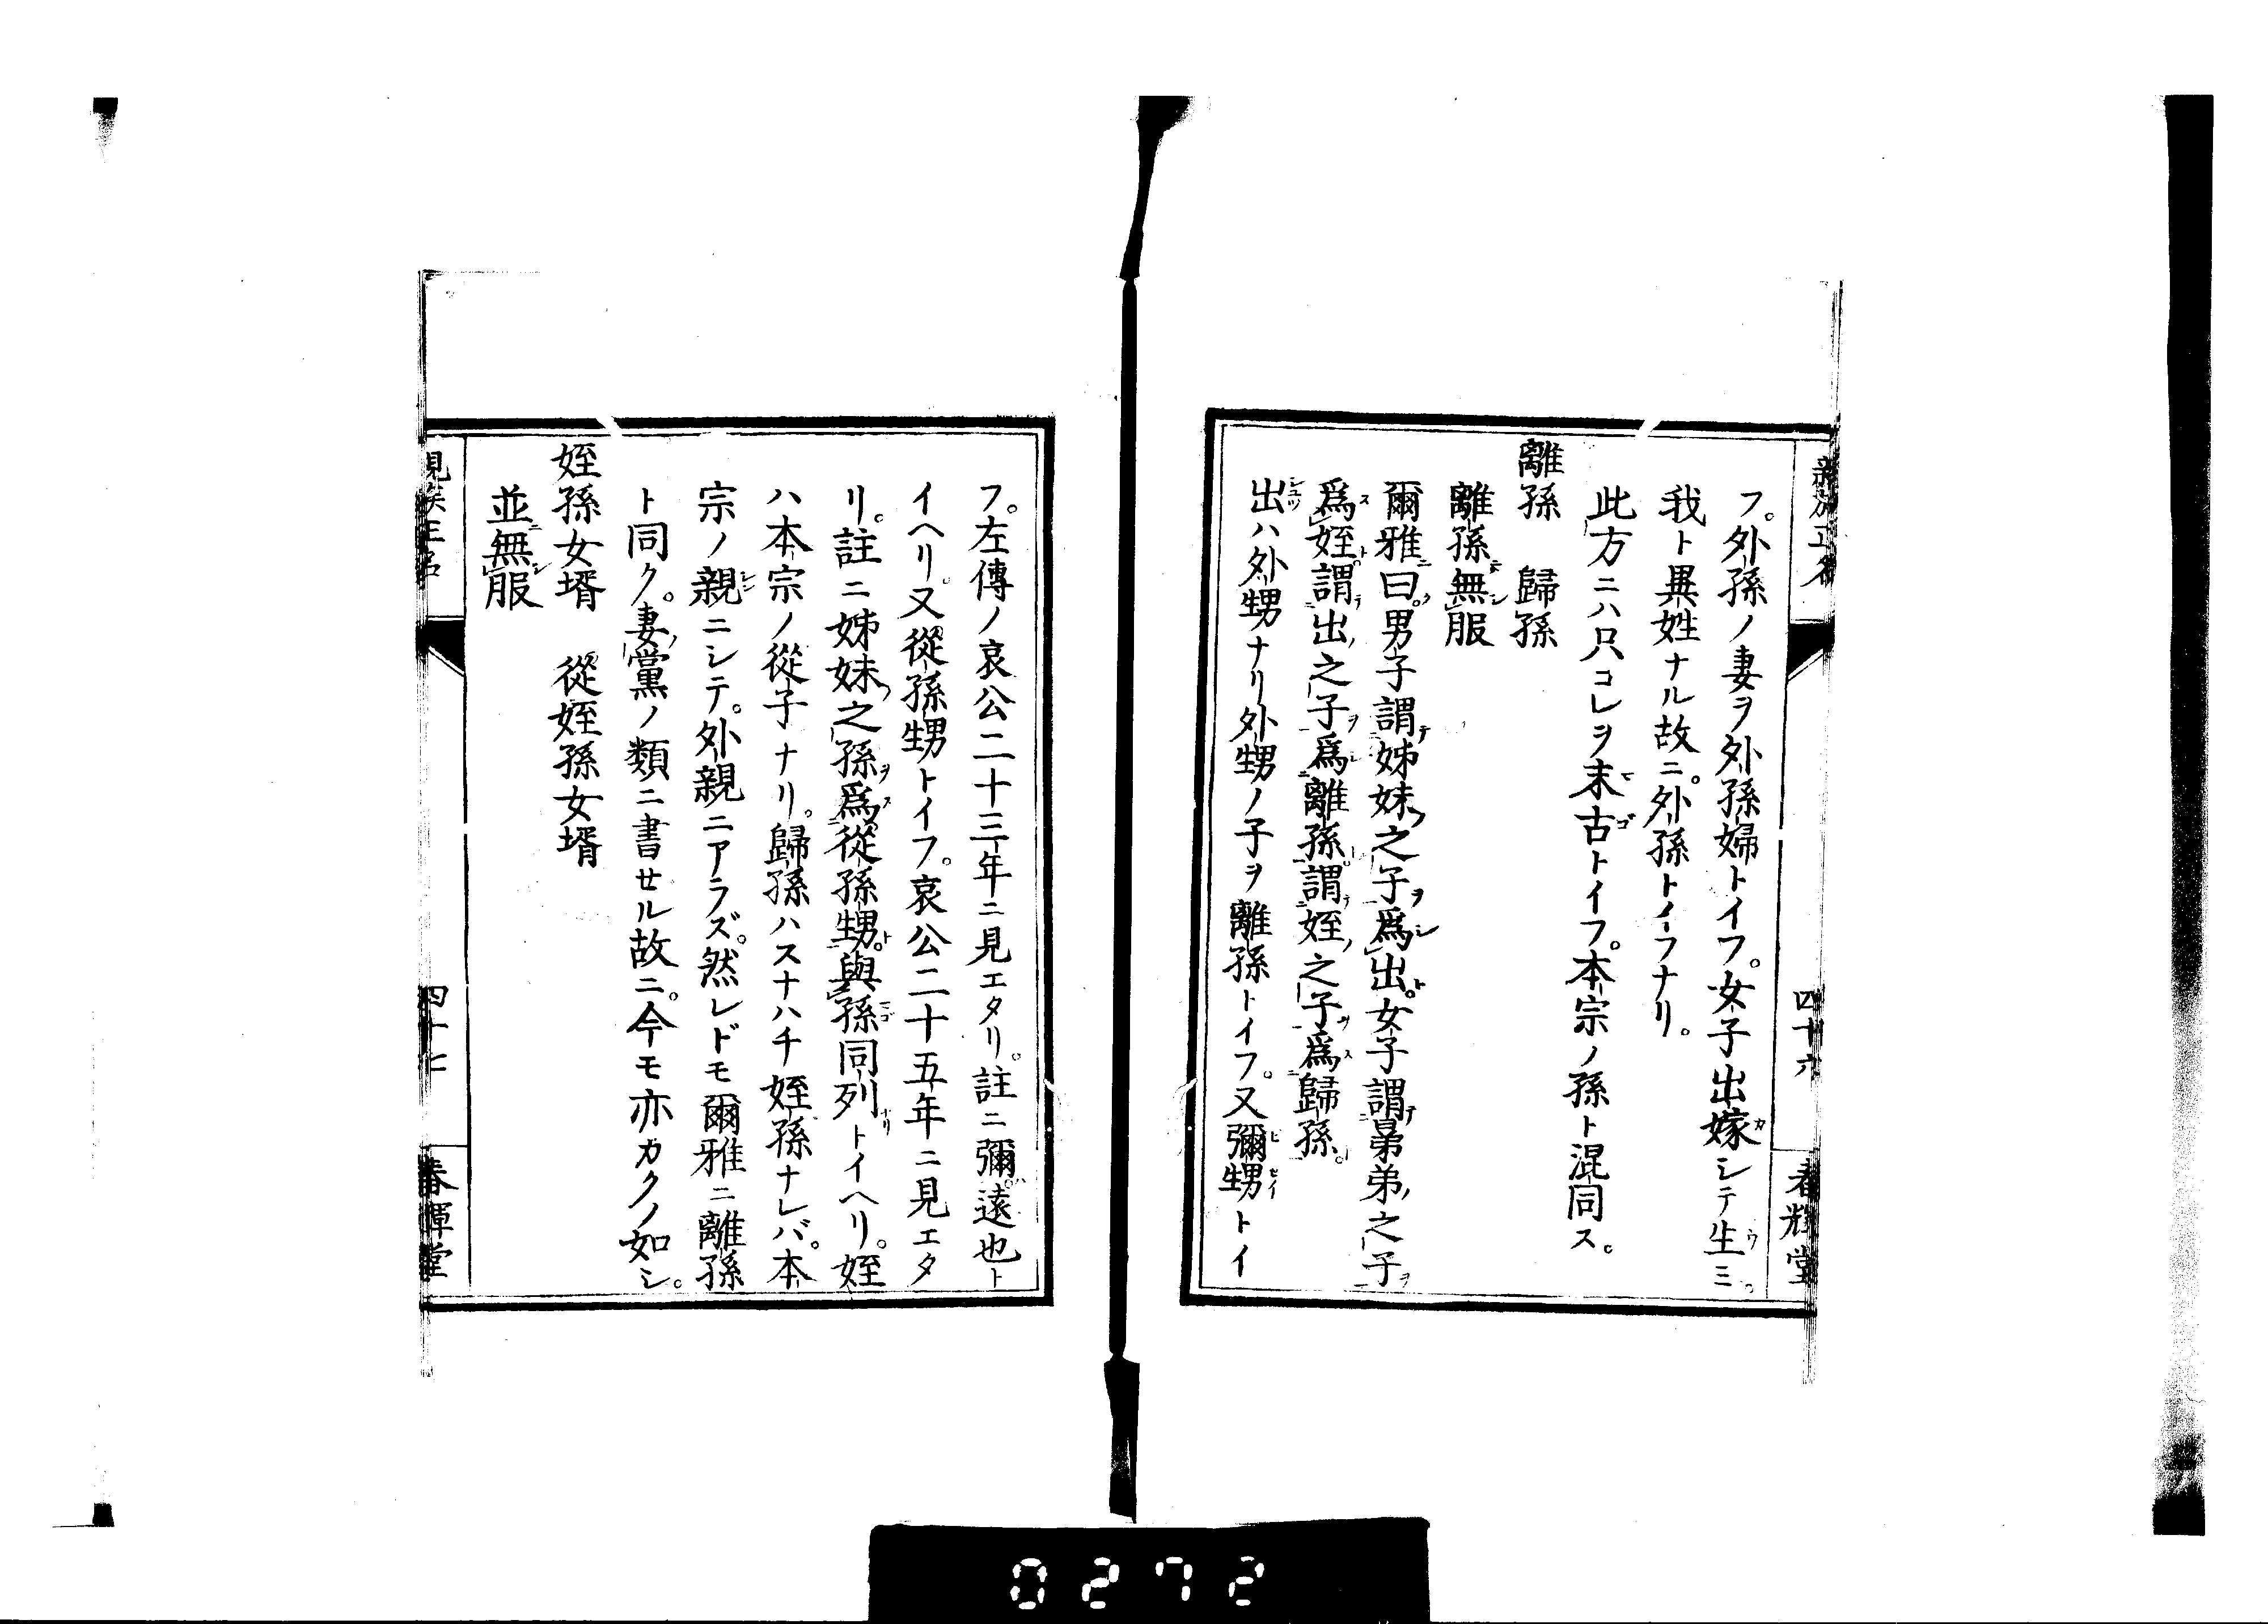 親族正名 四十六 春輝堂
フ。外孫ノ妻ヲ外孫婦トイフ。女子出嫁シテ生ミ。
我ト異姓ナル故ニ。外孫トイフナリ。
此方ニハ只コレヲ末古トイフ。本宗ノ孫ト混同ス。
離孫　歸孫
離孫無服
爾雅曰。男子謂姊妹之子爲出。女子謂晜弟之子
爲姪。謂出之子爲離孫。謂姪之子爲歸孫。
出ハ外甥ナリ外甥ノ子ヲ離孫トイフ。又彌甥トイ
フ。左傳ノ哀公二十三年ニ見エタリ。註ニ彌遠也ト
イヘリ又從孫甥トイフ。哀公二十五年ニ見エタ
リ。註ニ姊妹之孫爲從孫甥。與孫同列トイヘリ。姪
ハ本宗ノ從子ナリ。歸孫ハスナハチ姪孫ナレバ。本
宗ノ親ニシテ。外親ニアラズ。然レドモ爾雅ニ離孫
ト同ク。妻黨ノ類ニ書セル故ニ。今モ亦カクノ如シ。
姪孫女壻　從姪孫女壻
並無服
親族正名 四十七 春輝堂
0272